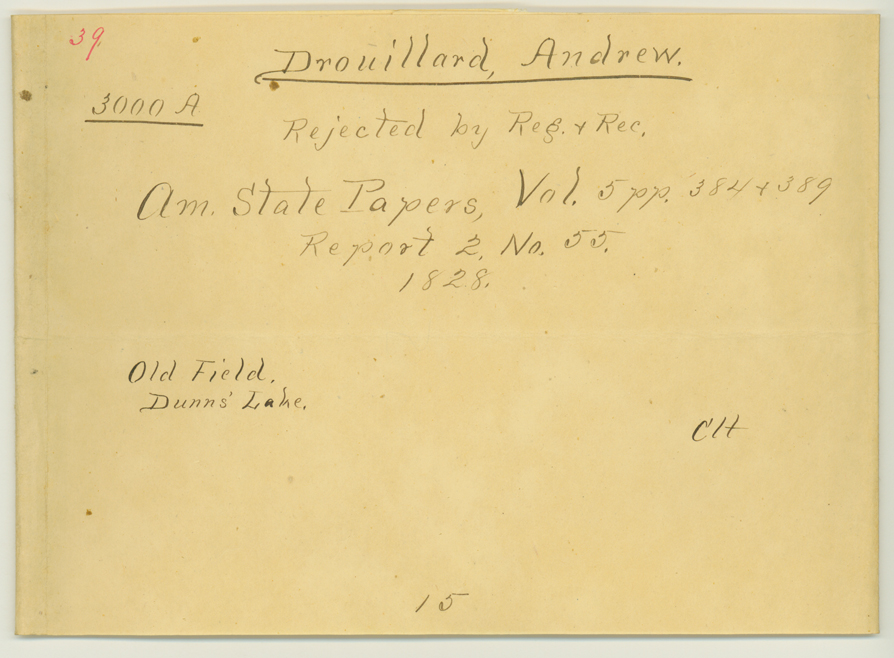 39
Drouillard, Andrew.
3000 A
Rejected by Reg. & Rec.
Am. State Papers, Vol. 5 pp. 384 & 389
Report 2, No. 55.
1828.
Old Field.
Dunns' Lake.
CH
15